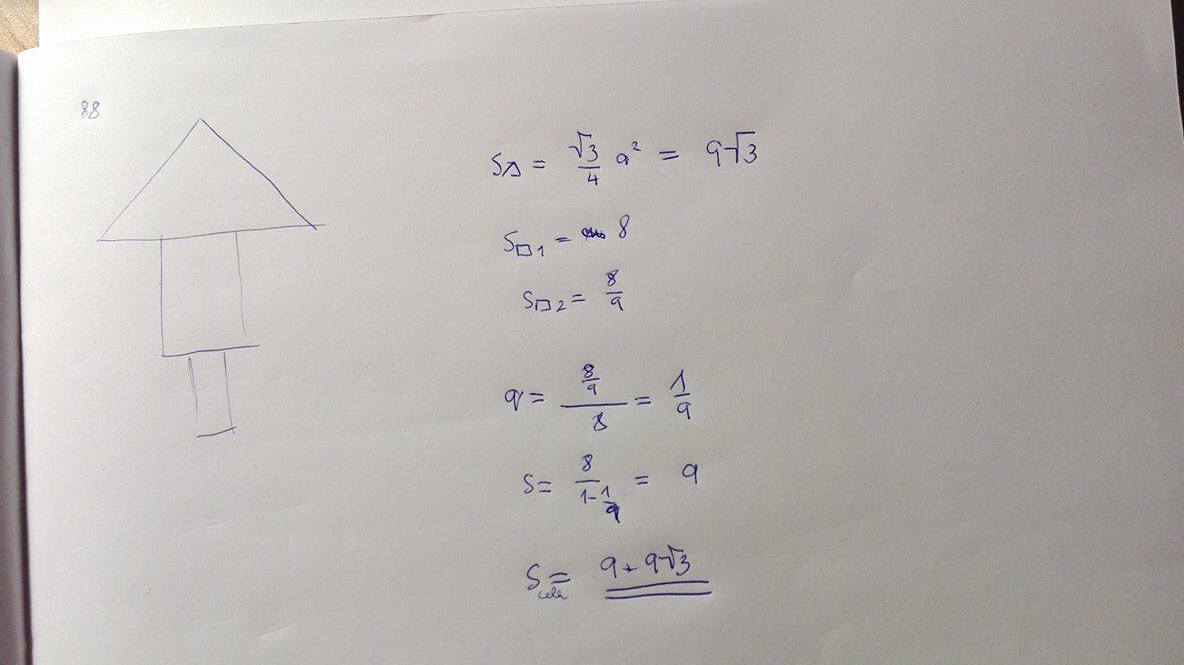 88
S△ = √3/4 a² = 9√3
S□1 = 8
S□2 = 8/9
q = (8/9)/8 = 1/9
S = 8/(1-1/9) = 9
S celk = 9 + 9√3